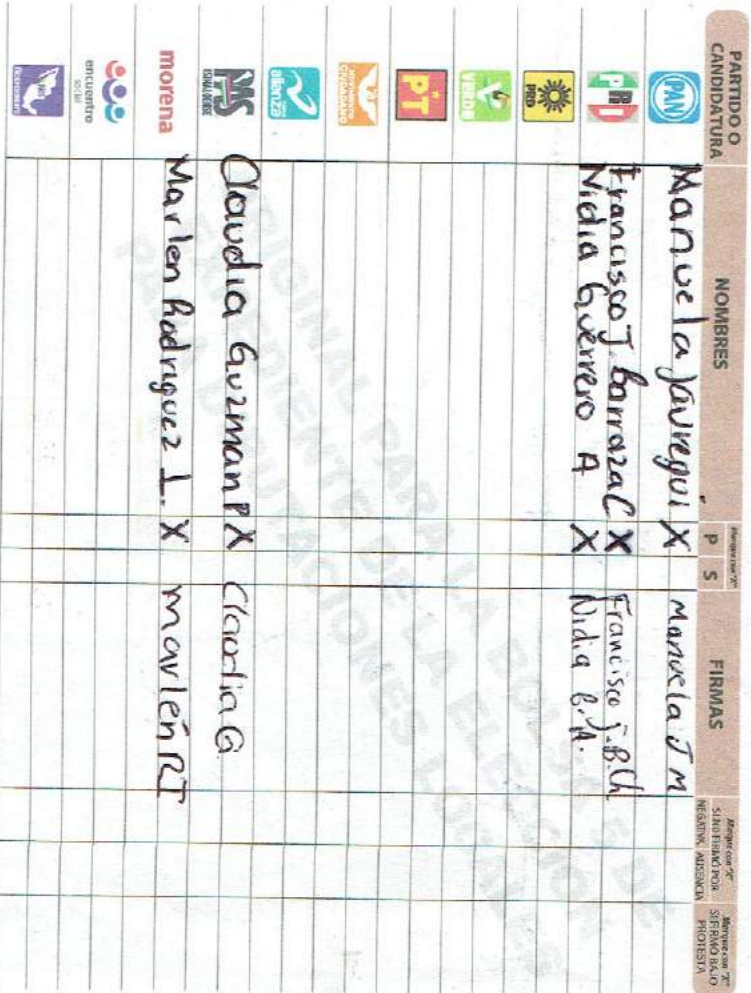 PARTIDO O CANDIDATURA
NOMBRES
Marque con "X"
P S
FIRMAS
Marque con "X" SI NO FIRMÓ POR
NEGATIVA AUSENCIA
Marque con "X" SI FIRMÓ BAJO PROTESTA
PAN Manuela Jauregui X Manuela J M
PRI Francisco J. Barraza C X Francisco J. B. Ch
Nidia Guerrero A X Nidia G. A.
PRD
VERDE
PT
MOVIMIENTO CIUDADANO
nueva alianza
PAS SINALOENSE Claudia Guzman P X Claudia G.
morena Marlen Rodriguez I. X marlén RI
encuentro social
ORIGINAL PARA LA BOLSA DE
EXPEDIENTE DE LA ELECCIÓN
PARA DIPUTACIONES LOCALES